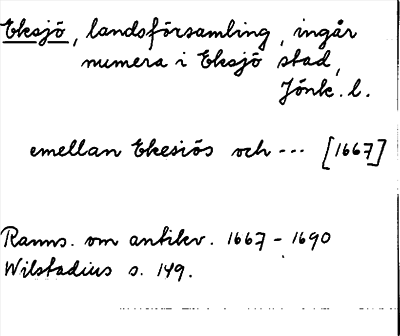 Eksjö, landsförsamling, ingår
numera i Eksjö stad,
Jönk. l.
emellan Ekesiös och --- [1667]
Ranns. om antikv. 1667 - 1690
Wilstadius s. 149.